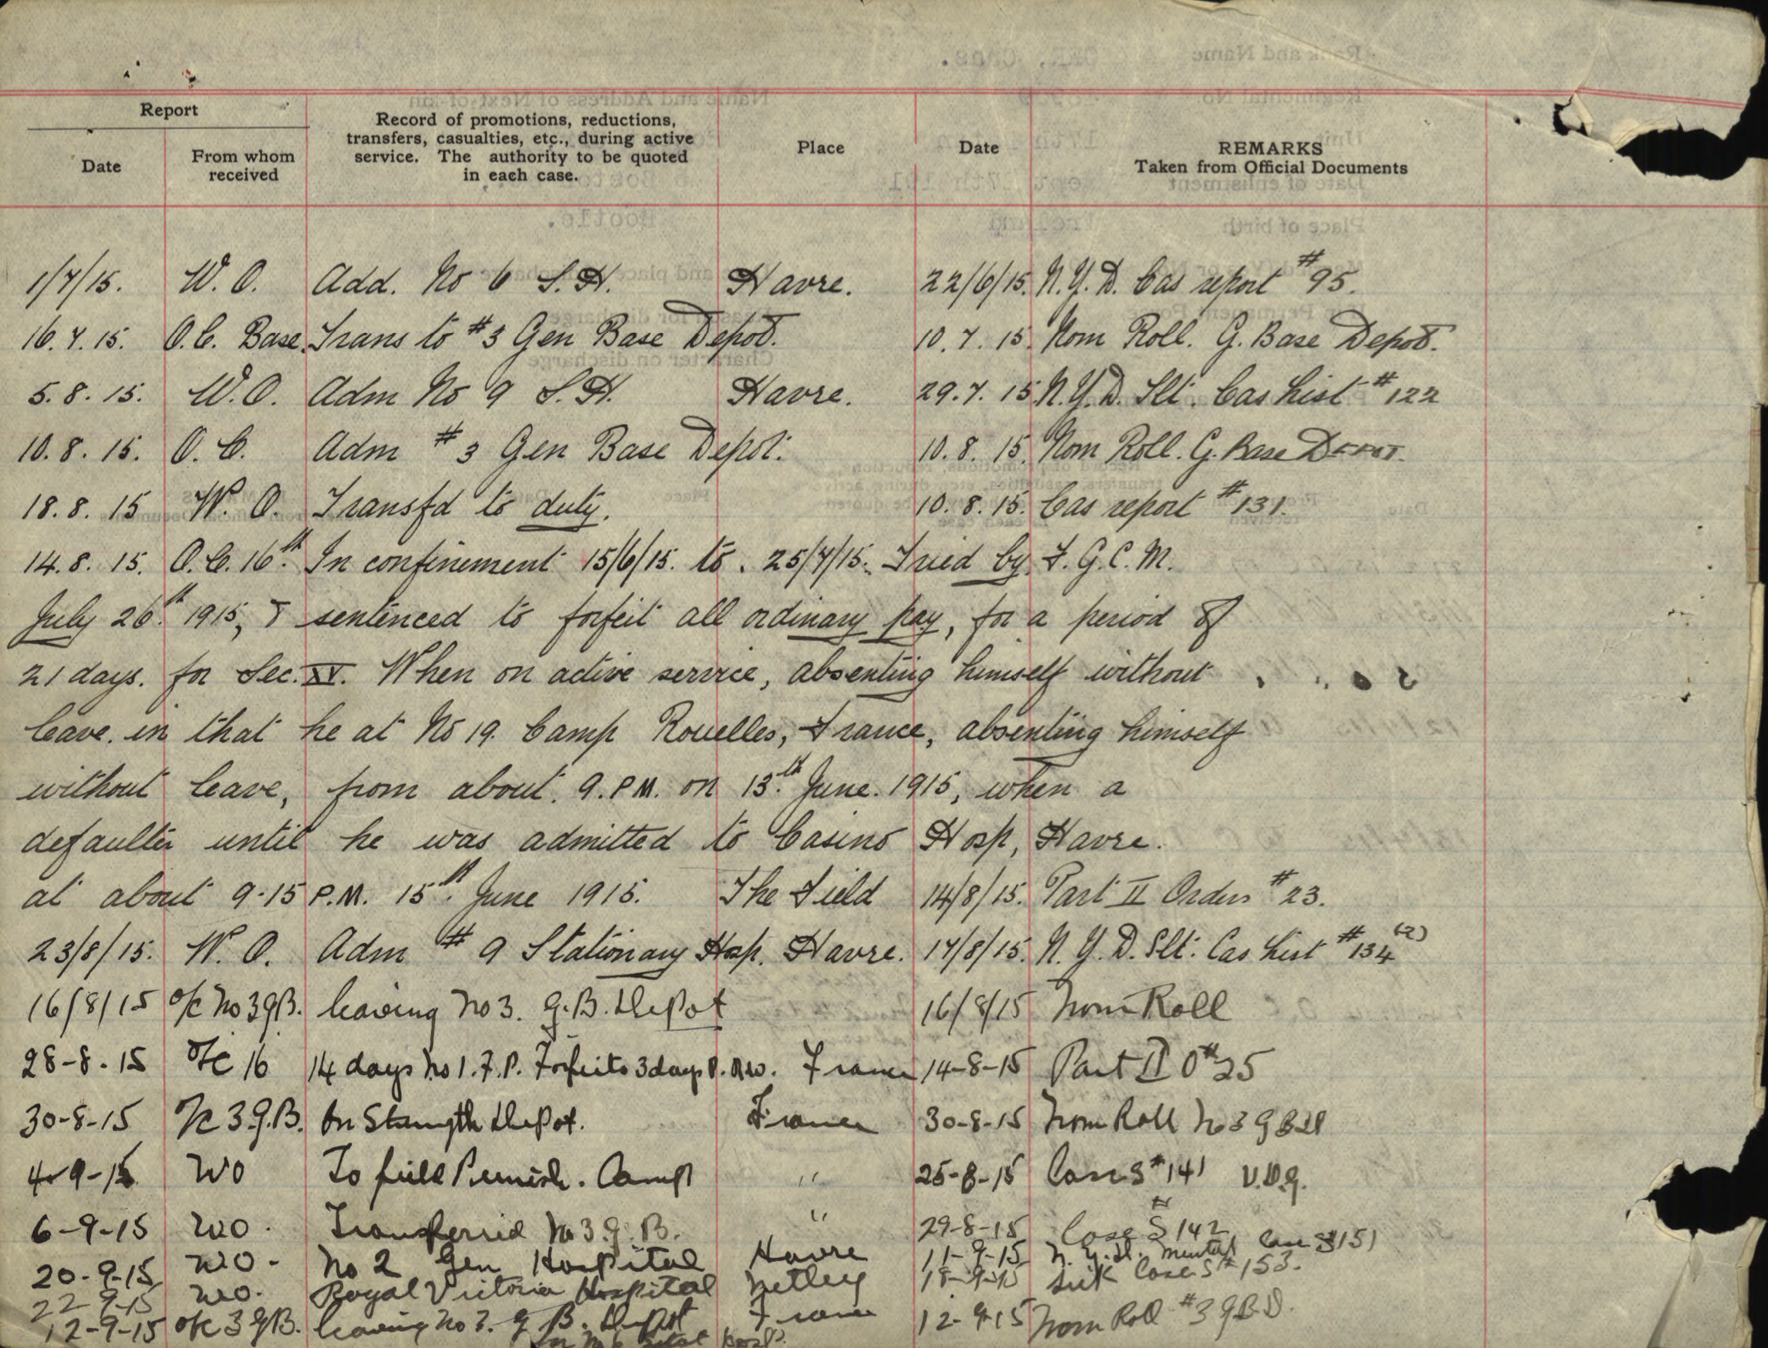 Report
Date
From whom received
Record of promotions, reductions, transfers, casualties, etc., during active service. The authority to be quoted in each case.
Place
Date
REMARKS
Taken from Official Documents
1/7/15. W. O. Add. No 6 S.H. Havre. 22/6/15. N.Y.D. Cas report #95.
16.7.15. O.C. Base. Trans to #3 Gen Base Depot. 10.7.15. Nom Roll. G. Base Depot.
5.8.15. W.O. Adm No 9 S.H. Havre. 29.7.15 N.Y.D. Slt. Cas List #122
10.8.15. O.C. Adm #3 Gen Base Depot. 10.8.15. Nom Roll. G. Base Depot.
18.8.15 W.O. Transfd to duty. 10.8.15. Cas report #131.
14.8.15. O.C. 16th. In confinement 15/6/15. to. 25/7/15. Tried by F.G.C.M.
July 26th. 1915, & sentenced to forfeit all ordinary pay, for a period of
21 days. for Sec. XV. When on active service, absenting himself without
leave. in that he at No 19. Camp Rouelles, France, absenting himself
without leave, from about. 9. P.M. on 13th. June. 1915, when a
defaulter until he was admitted to Casino Hosp, Havre.
at about 9-15 P.M. 15th. June 1915. The Field 14/8/15. Part II Orders #23.
23/8/15. W.O. Adm #9 Stationary Hosp. Havre. 17/8/15. N.Y.D. Slt. Cas List #134 (2)
16/8/15 o/c No 3 GB. leaving No 3. G.B. Depot 16/8/15 Nom Roll
28-8-15 O/C 16 14 days No 1. F.P. Forfeits 3 days P. France 14-8-15 Part II O #25
30-8-15 O/c 3.G.B. On Strength Depot. France 30-8-15 Nom Roll No 3 GBD
4-9-15 WO To field Punish. Camp " 25-8-15 Cas S #141 V.D.G.
6-9-15 WO. Transferred No 3 G.B. " 29-8-15 Case S #142
20-9-15 WO- No 2 Gen Hospital Havre 11-9-15 N.Y.D. mental Cas S #151
22-9-15 WO. Royal Victoria Hospital Netley 18-9-15 Sick Case S #153.
12-9-15 o/c 3 GB. leaving No 3. G B. Depot France 12-9-15 Nom Roll #3 GBD.